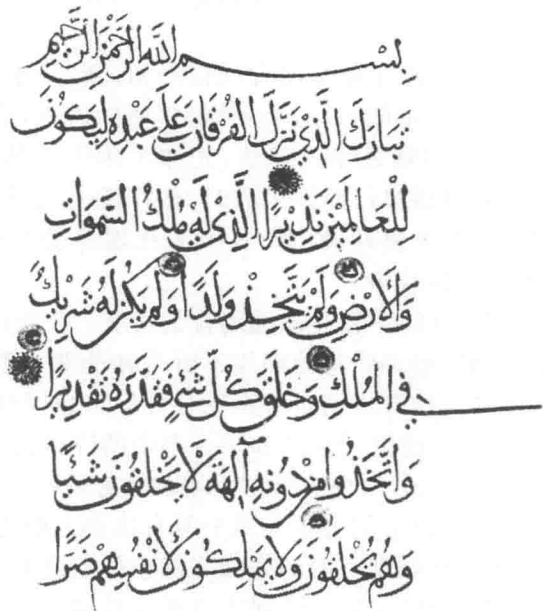 بِسْمِ اللَّهِ الرَّحْمَنِ الرَّحِيمِ
تَبَارَكَ الَّذِي نَزَّلَ الْفُرْقَانَ عَلَى عَبْدِهِ لِيَكُونَ
لِلْعَالَمِينَ نَذِيرًا الَّذِي لَهُ مُلْكُ السَّمَوَاتِ
وَالْأَرْضِ وَلَمْ يَتَّخِذْ وَلَدًا وَلَمْ يَكُنْ لَهُ شَرِيكٌ
فِي الْمُلْكِ وَخَلَقَ كُلَّ شَيْءٍ فَقَدَّرَهُ تَقْدِيرًا
وَاتَّخَذُوا مِنْ دُونِهِ آلِهَةً لَا يَخْلُقُونَ شَيْئًا
وَهُمْ يُخْلَقُونَ وَلَا يَمْلِكُونَ لِأَنْفُسِهِمْ ضَرًّا